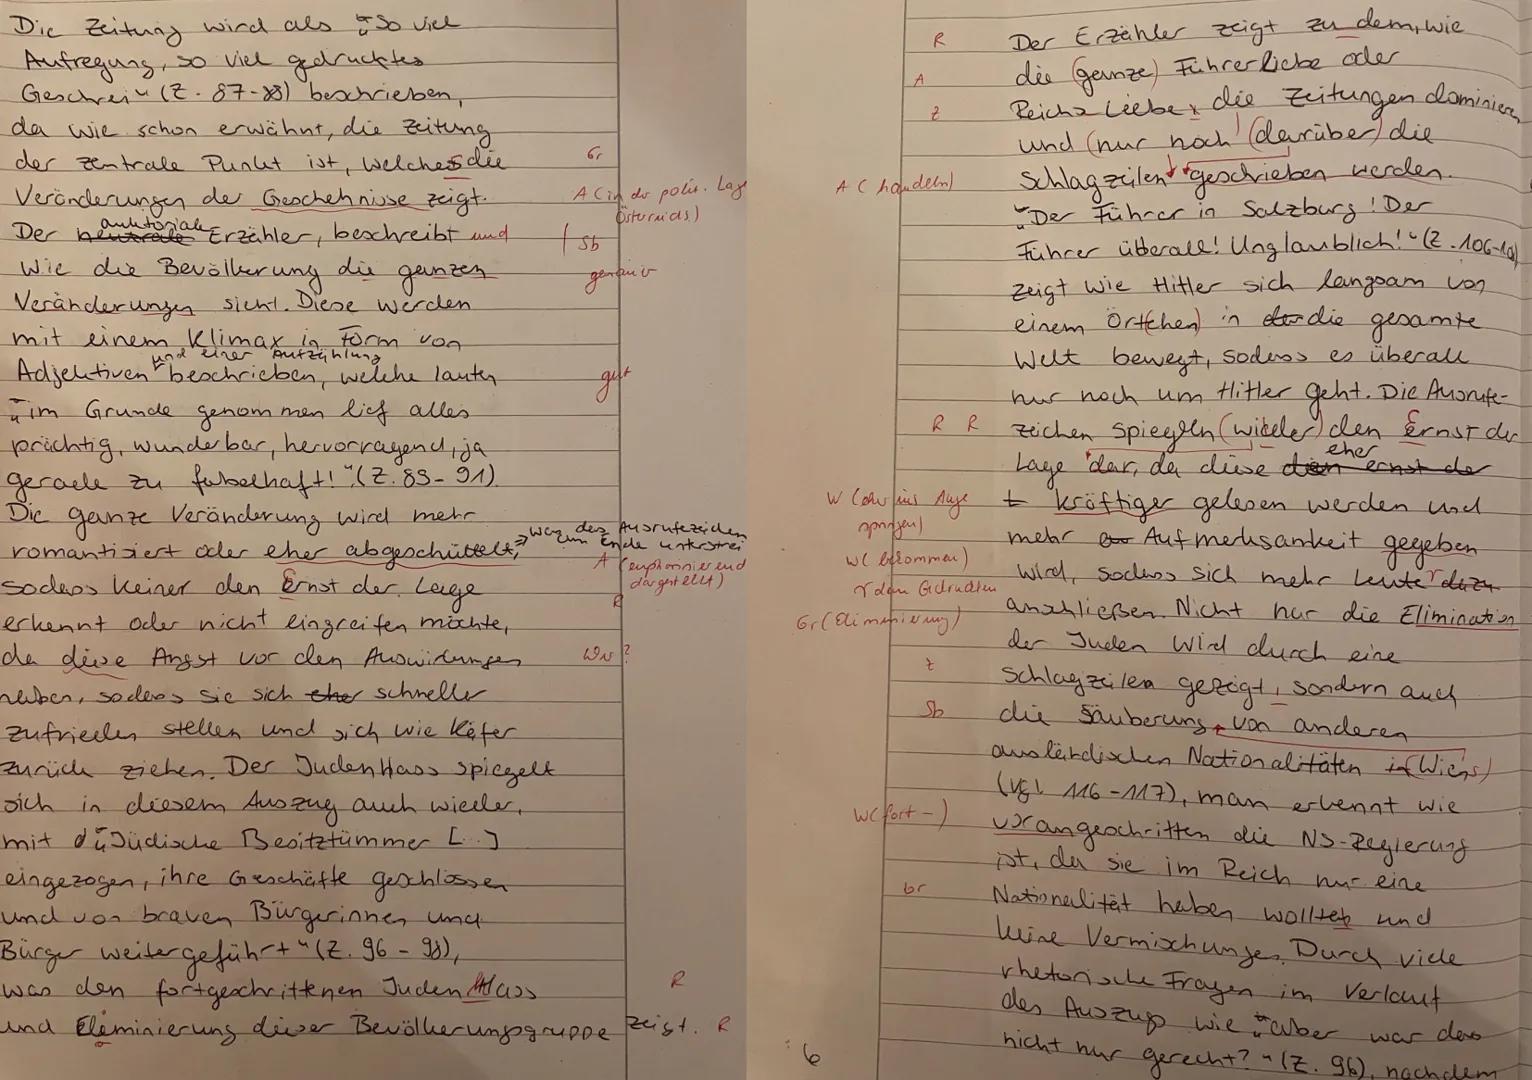 Die Zeitung wird als „So viel
Aufregung, so viel gedrucktes
Geschrei“ (Z. 87-88) beschrieben,
da wie schon erwähnt, die Zeitung
der zentrale Punkt ist, welches die
Gr
Veränderungen der Geschehnisse zeigt.
A (in der polit. Lage
Österreichs)
auktoriale
Der neutrale Erzähler, beschreibt und
Sb
Wie die Bevölkerung die ganzen
genauer
Veränderungen sieht. Diese werden
mit einem Klimax in Form von
und einer Aufzählung
Adjektiven beschrieben, welche lauten
gut
„im Grunde genommen lief alles
prächtig, wunderbar, hervorragend, ja
gerade zu fabelhaft!“ (Z. 89-91).
Die ganze Veränderung wird mehr
romantisiert oder eher abgeschüttelt,
was das Ausrufezeichen
zum Ende unterstrei
A (euphemisierend
dargestellt)
sodass keiner den Ernst der Lage
R
erkennt oder nicht eingreifen möchte,
da diese Angst vor den Auswirkungen
Wer?
haben, sodass sie sich eher schneller
zufrieden stellen und sich wie Käfer
zurück ziehen. Der JudenHass spiegelt
sich in diesem Auszug auch wieder,
mit „Jüdische Besitztümmer [..]
eingezogen, ihre Geschäfte geschlossen
und von braven Bürgerinnen und
Bürger weitergeführt“ (Z. 96 - 98),
was den fortgeschrittenen Juden Hass
R
und Eleminierung dieser Bevölkerungsgruppe zeigt.
R
R
Der Erzähler zeigt zu dem, wie
A
die (ganze) Führerliebe oder
Z
Reichs Liebe, die Zeitungen dominieren
und (nur noch (darüber) die
A (handeln)
Schlagzeilen geschrieben werden.
„Der Führer in Salzburg! Der
Führer überall! Unglaublich!“ (Z. 106-10
zeigt wie Hitler sich langsam von
einem Ört(chen) in die gesamte
Welt bewegt, sodass es überall
nur noch um Hitler geht. Die Ausrufe-
R R
zeichen spiegeln (wieder) den Ernst der
eher
Lage dar, da diese den ernst der
W (ins Auge
springen)
kräftiger gelesen werden und
mehr Aufmerksamkeit gegeben
W (bekommen)
wird, sodass sich mehr Leute dazu
dem Gedruckten
anschließen. Nicht nur die Elimination
Gr (Eliminierung)
der Juden wird durch eine
Z
Schlagzeilen gezeigt, sondern auch
Sb
die Säuberung von anderen
ausländischen Nationalitäten in (Wiens)
(vgl. 116-117), man erkennt wie
W (fort-)
vorangeschritten die NS-Regierung
ist, da sie im Reich nur eine
br
Nationalität haben wollten und
keine Vermischungen. Durch viele
rhetorische Fragen im Verlauf
des Auszugs wie „aber war das
nicht nur gerecht?“ (Z. 96), nachdem
6